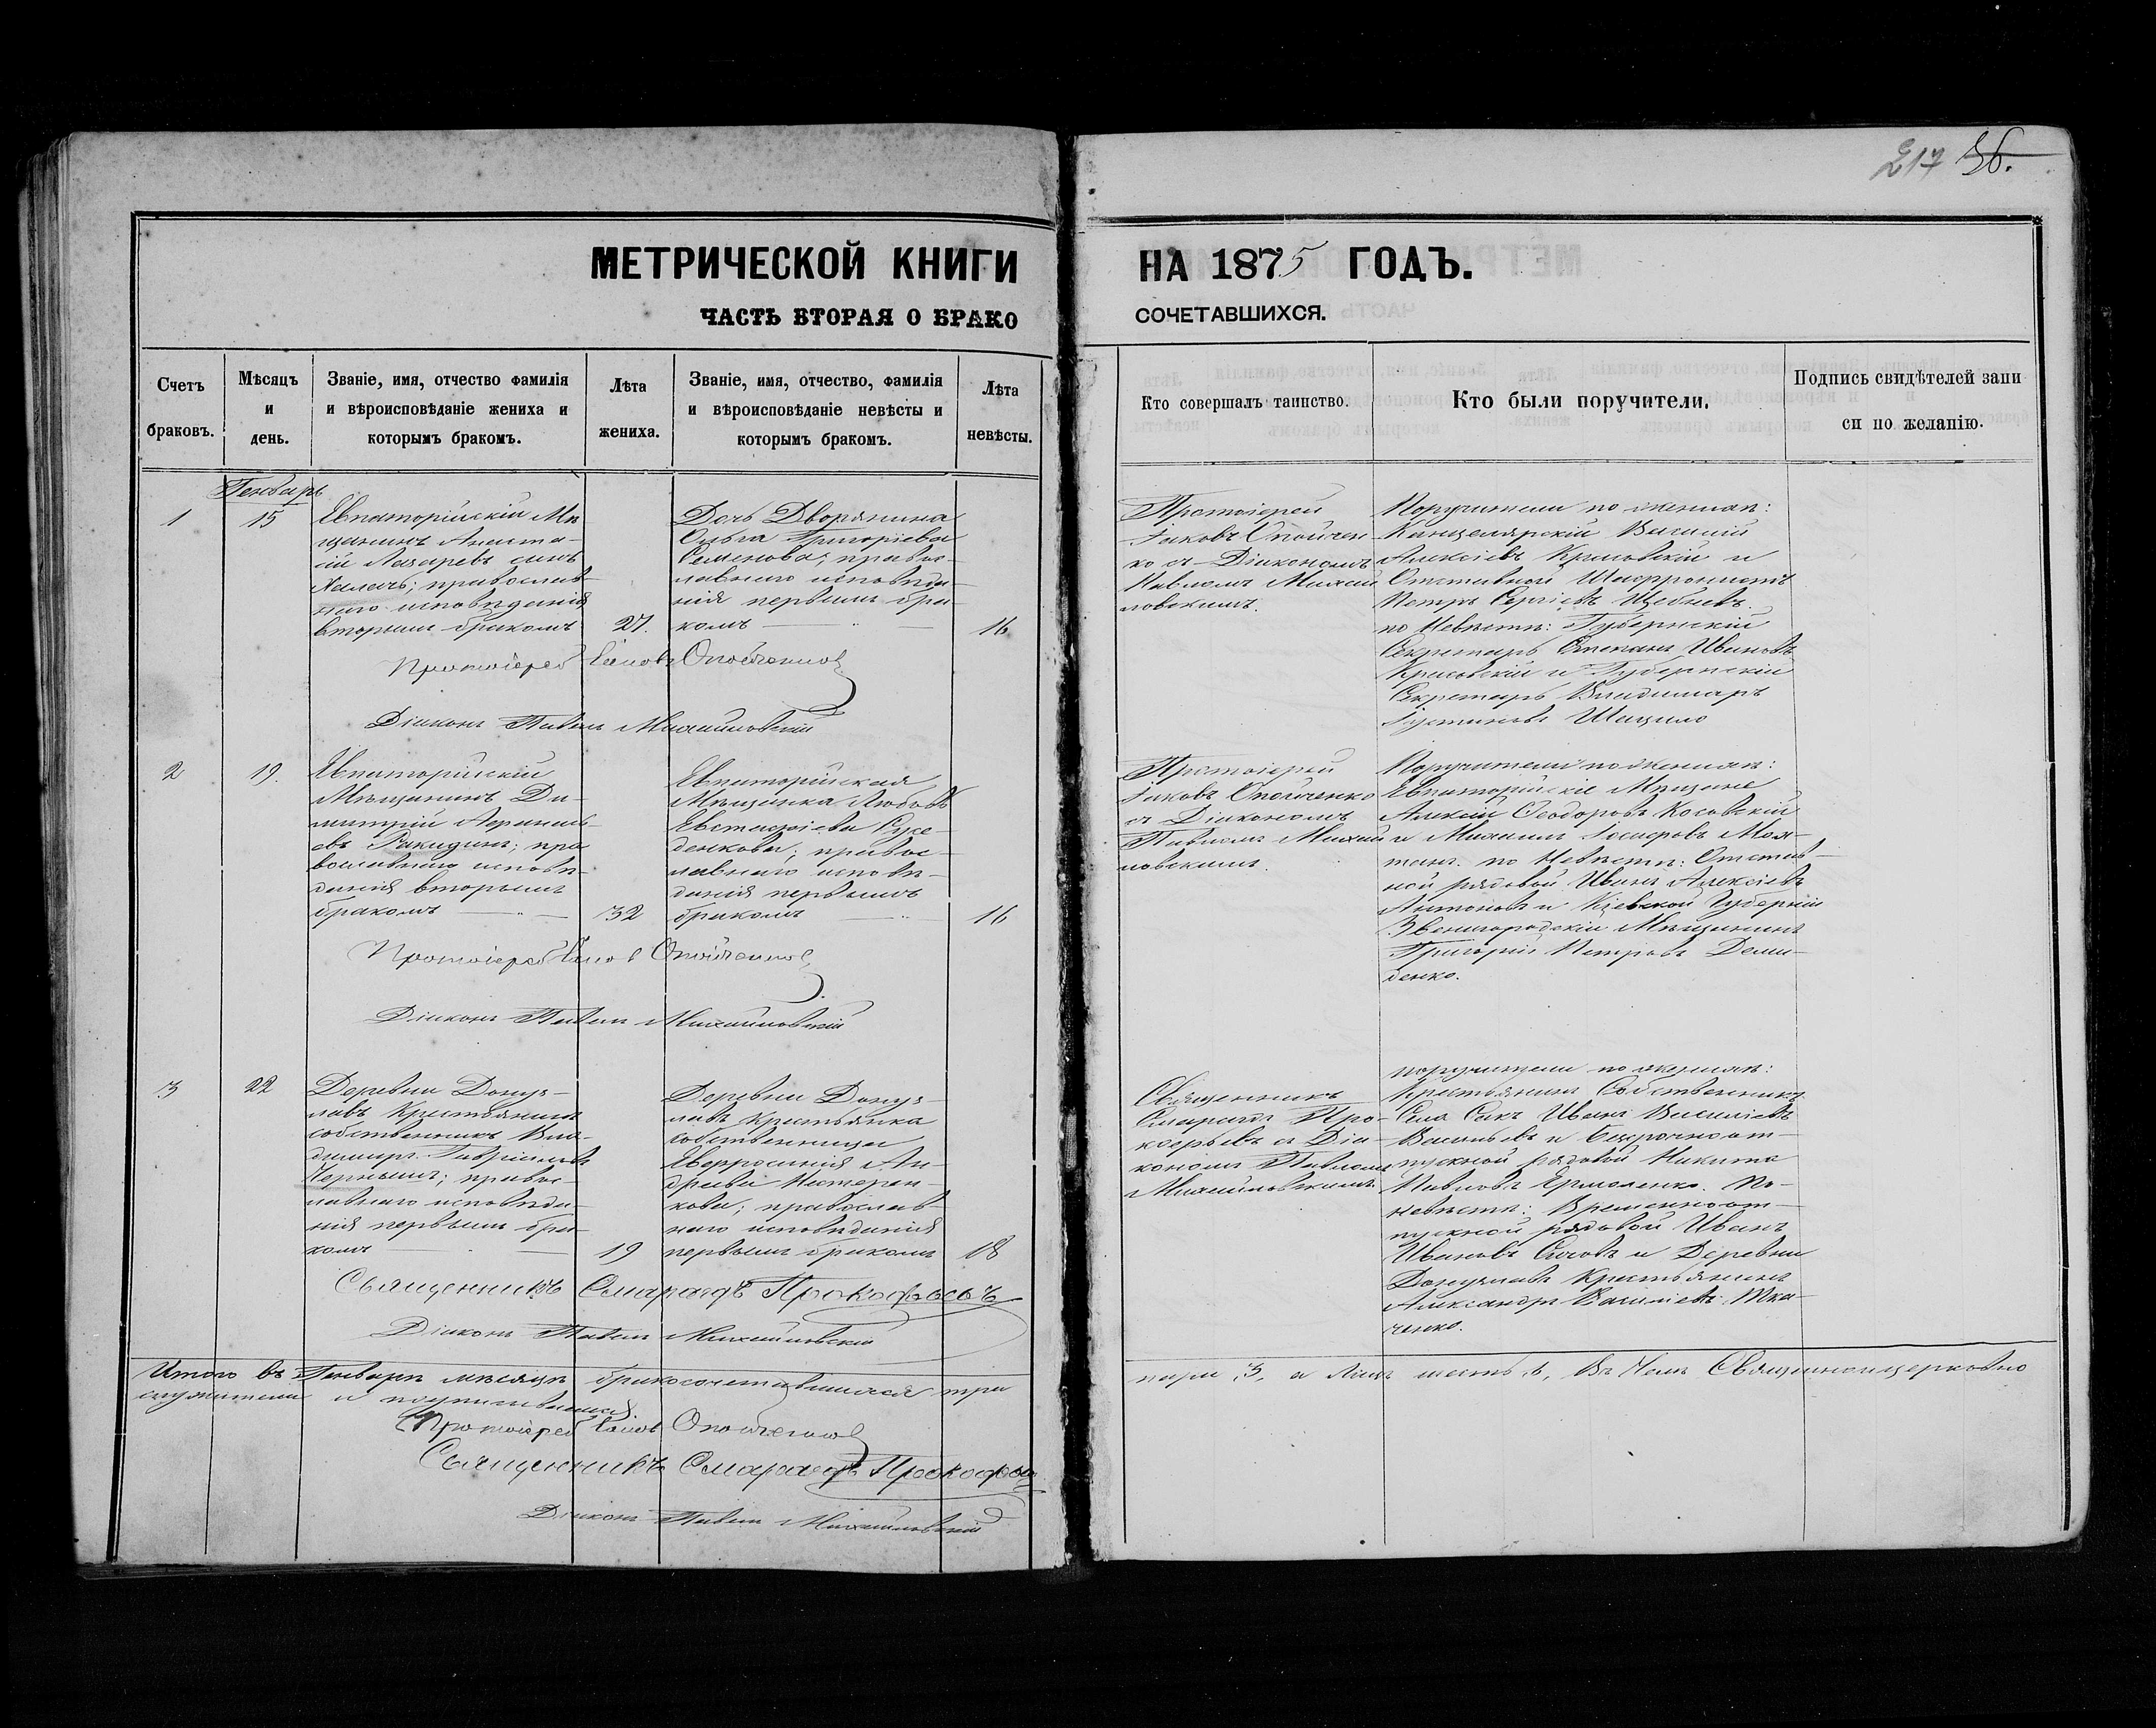 217 36.
МЕТРИЧЕСКОЙ КНИГИ
НА 1875 ГОДЪ.
ЧАСТЬ ВТОРАЯ О БРАКО
СОЧЕТАВШИХСЯ.
Счетъ
браковъ.
Мѣсяцъ
и
день.
Званіе, имя, отчество фамилія
и вѣроисповѣданіе жениха и
которымъ бракомъ.
Лѣта
жениха.
Званіе, имя, отчество, фамилія
и вѣроисповѣданіе невѣсты и
которымъ бракомъ.
Лѣта
невѣсты.
Кто совершалъ таинство.
Кто были поручители.
Подпись свидѣтелей запи
си по желанію.
Генварь
1
15
Евпаторійскій Мѣ
щанинъ Анаста-
сій Лазаревъ сынъ
православ-
наго исповѣданія
вторымъ бракомъ
27.
Дочь Дворянина
Ольга Григоріева
Семенова; правос-
лавнаго исповѣда-
нія первымъ бра-
комъ
16
Протоіерей
Іаковъ Опойчен-
ко съ Діакономъ
Павломъ Михай
ловскимъ.
Поручители по женихѣ:
Канцелярскій Василій
Алексіевъ и
Отставной
Петръ Сергіевъ
по Невѣстѣ: Губернскій
Секретарь Степанъ Ивановъ
и Губернскій
Секретарь Владимиръ
Протоіерей Іаковъ Опойченко
Діаконъ Павелъ Михайловскій
2
19.
Евпаторійскій
Мѣщанинъ Ди-
митрій Аѳанась-
евъ Ракидинъ; пра
вославнаго исповѣ-
данія вторымъ
бракомъ
32
Евпаторійская
Мѣщанка Любовь
Евстафіева
правос-
лавнаго исповѣ-
данія первымъ
бракомъ
16
Протоіерей
Іаковъ Опойченко
съ Діакономъ
Павломъ Михай
ловскимъ.
Поручители по женихѣ:
Евпаторійскіе Мѣщане
Алексій Ѳеодоровъ Косовскій
и Михаилъ Іосифовъ
по Невѣстѣ: Отстав-
ной рядовой Иванъ Алексіевъ
Антоновъ и Кіевской Губерніи
Звенигородскій Мѣщанинъ
Григорій Петровъ Деми-
денко.
Протоіерей Іаковъ Опойченко
Діаконъ Павелъ Михайловскій
3
22
Деревни Донуз-
лавъ Крестьянинъ
собственникъ Вла-
димиръ Гавріиловъ
Чернышъ; правос-
лавнаго исповѣда-
нія первымъ бра-
комъ
19
Деревни Донуз-
лавъ Крестьянка
собственница
Евфросинія Ан-
дреева Нестерен-
кова; православ-
наго исповѣданія
первымъ бракомъ
18
Священникъ
Смарагдъ Про-
кофьевъ съ Діа-
кономъ Павломъ
Михайловскимъ
поручители по женихѣ:
Крестьянинъ Собственникъ
Села Сакъ Иванъ Василіевъ
Васильевъ и Безсрочноот-
пускной рядовой Никита
Павловъ Ермоленко. По-
невѣстѣ: Временноот-
пускной рядовой Иванъ
Ивановъ и Деревни
Донузлавъ Крестьянинъ
Александръ Василіевъ Тка-
ченко.
Священникъ Смарагдъ Прокофьевъ
Діаконъ Павелъ Михайловскій
Итого въ Генварѣ мѣсяцѣ бракосочетавшихся три
пары, 3, а лицъ шесть, 6, Въ чемъ Священноцерковно
служители и подписываемся
Протоіерей Іаковъ Опойченко
Священникъ Смарагдъ Прокофьевъ
Діаконъ Павелъ Михайловскій